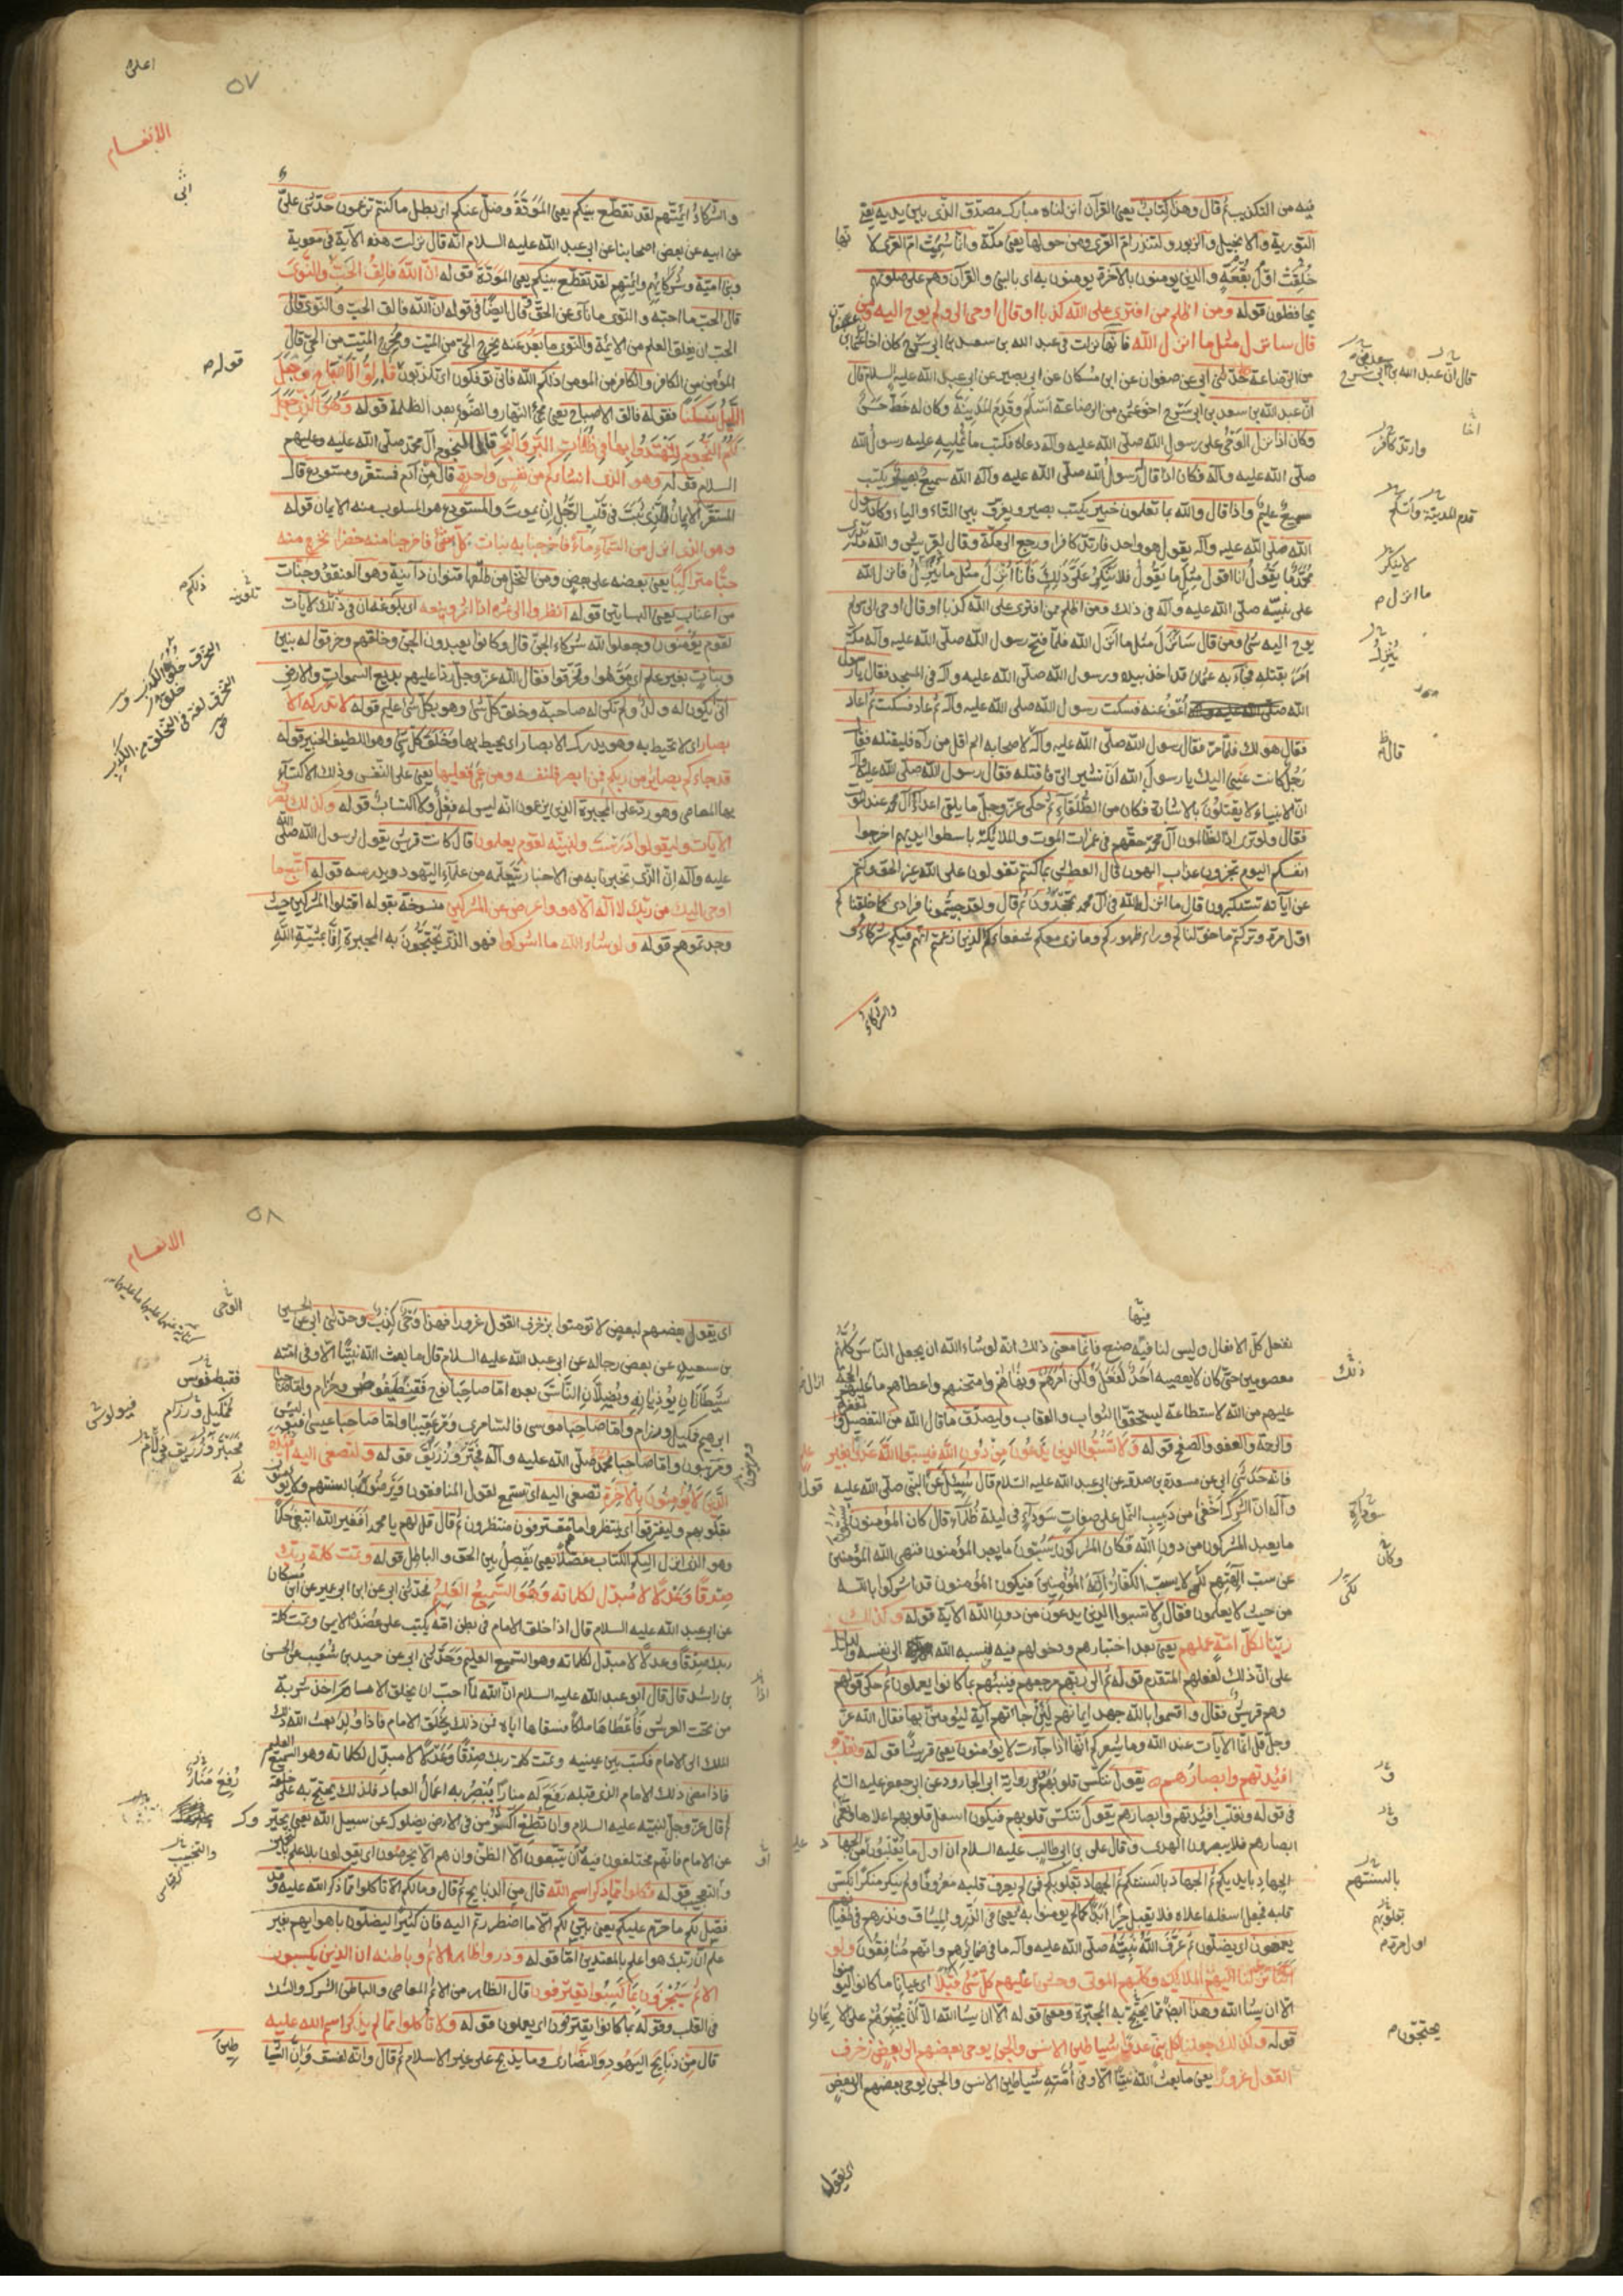 فيه من التكذيب ثم قال وهذا كتاب يعنى القرآن انزلناه مبارك مصدق الذى بين يديه يعنى
التورية والانجيل والزبور ولتنذر ام القرى ومن حولها يعنى مكة وانما سميت ام القرى لا
خلقت اول بقعة والذين يومنون بالاخرة يومنون به اى بالنبى والقرآن وهم على صلوتهم
يحافظون قوله ومن اظلم ممن افترى على الله كذبا او قال اوحى الى ولم يوح اليه شئ ومن
قال سانزل مثل ما انزل الله فانها نزلت فى عبد الله بن سعد بن ابى سرح كان اخا عثمان
من الرضاعة حدثنى ابى عن صفوان عن ابن مسكان عن ابى بصير عن ابى عبد الله عليه السلام قال
ان عبد الله بن سعد بن ابى سرح اخو عثمن من الرضاعة اسلم وقدم المدينة وكان له خط حسن
وكان اذا نزل الوحى على رسول الله صلى الله عليه وآله دعاه فكتب ما يمليه عليه رسول الله
صلى الله عليه وآله فكان اذا قال رسول الله صلى الله عليه وآله والله سميع بصير يكتب
سميع عليم واذا قال والله بما تعلمون خبير يكتب بصير ويفرق بين التاء والياء وكان رسول
الله صلى الله عليه وآله يقول هو واحد فارتد كافرا ورجع الى مكة وقال لقريش والله ما يدرى
محمد ما يقول انا اقول مثل ما يقول فلا ينكر على ذلك فانا انزل مثل ما ينزل فانزل الله
على نبيه صلى الله عليه وآله فى ذلك ومن اظلم ممن افترى على الله كذبا او قال اوحى الى ولم
يوح اليه شئ ومن قال سانزل مثل ما انزل الله فلما فتح رسول الله صلى الله عليه وآله مكة
امر بقتله فجاء به عثمان قد اخذ بيده ورسول الله صلى الله عليه وآله فى المسجد فقال يا رسول
الله اعف عنه فسكت رسول الله صلى الله عليه وآله ثم عاد فسكت ثم اعاد
فقال هو لك فلما مر فقال رسول الله صلى الله عليه وآله لاصحابه الم اقل من رآه فليقتله فقال
رجل كانت عينى اليك يا رسول الله ان تشير الى فاقتله فقال رسول الله صلى الله عليه وآله
ان الانبياء لا يقتلون بالاشارة فكان من الطلقاء ثم حكى عز وجل ما يلقى اعداء آل محمد عند الموت
فقال ولو ترى اذ الظالمون آل محمد حقهم فى غمرات الموت والملائكة باسطوا ايديهم اخرجوا
انفسكم اليوم تجزون عذاب الهون قال العطش بما كنتم تقولون على الله غير الحق وكنتم
عن آياته تستكبرون قال ما انزل الله فى آل محمد تجحدون ثم قال ولقد جئتمونا فرادى كما خلقناكم
اول مرة وتركتم ما خولناكم وراء ظهوركم وما نرى معكم شفعاءكم الذين زعمتم انهم فيكم شركاء و
والشركاء
قال ان عبد الله بن سعد بن ابى سرح
وارتد كافرا
قدم المدينة واسلم
لا ينكر
ما انزل
ينزل
قال
٥٧
الانعام
والشركاء ائمتهم لقد تقطع بينكم يعنى المودة وضل عنكم اى بطل ما كنتم تزعمون حدثنى على
عن ابيه عن بعض اصحابنا عن ابى عبد الله عليه السلام انه قال نزلت هذه الآية فى معوية
وبنى امية وشركائهم وائمتهم لقد تقطع بينكم يعنى المودة قوله ان الله فالق الحب والنوى
قال الحب ما احبه والنوى ما ناى عن الحق وقال ايضا فى قوله ان الله فالق الحب والنوى قال
الحب ان يفلق العلم من الائمة والنوى ما بعد عنه يخرج الحى من الميت ومخرج الميت من الحى قال
المؤمن من الكافر والكافر من المومن ذلكم الله فانى توفكون اى تكذبون فالق الاصباح وجعل
الليل سكنا فقوله فالق الاصباح يعنى مجئ النهار والضوء بعد الظلمة قوله وهو الذى جعل
لكم النجوم لتهتدوا بها فى ظلمات البر والبحر قال النجوم آل محمد صلى الله عليه وعليهم
السلم قوله وهو الذى انشاءكم من نفس واحدة قال من آدم فمستقر ومستودع قال
المستقر الايمان الذى يثبت فى قلب الرجل الى ان يموت والمستودع هو المسلوب منه الايمان قوله
وهو الذى انزل من السماء ماءً فاخرجنا به نبات كل شئ فاخرجنا منه خضرا نخرج منه
حبا متراكبا يعنى بعضه على بعض ومن النخل من طلعها قنوان دانية وهو العنقود وجنات
من اعناب يعنى البساتين قوله انظروا الى ثمره اذا اثمر وينعه اى بلوغه ان فى ذلك لآيات
لقوم يؤمنون وجعلوا لله شركاء الجن قال وكانوا يعبدون الجن وخلقهم وخرقوا له بنين
وبنات بغير علم اى موهوا وتخرقوا فقال الله عز وجل ردا عليهم بديع السموات والارض
انى يكون له ولد ولم تكن له صاحبة وخلق كل شئ وهو بكل شئ عليم قوله لا تدركه الا
بصار اى لا تحيط به وهو يدرك الابصار اى يحيط بها وخلق كل شئ وهو اللطيف الخبير قوله
قد جاءكم بصاير من ربكم فمن ابصر فلنفسه ومن عمى فعليها يعنى على النفس وذلك الاكتساب
بها المعاصى وهو رد على المجبرة الذين يزعمون انه ليس له فعل ولا اكتساب قوله وكذلك نصرف
الآيات وليقولوا درست ولنبينه لقوم يعلمون قال كانت قريش يقول لرسول الله صلى الله
عليه وآله ان الذى تخبرنا به من الاخبار تتعلمه من علماء اليهود ويدرسه قوله اتبع ما
اوحى اليك من ربك لا اله الا هو واعرض عن المشركين منسوخة بقوله اقتلوا المشركين حيث
وجدتموهم قوله ولو شاء الله ما اشركوا فهو الذى يحتجون به المجبرة انا بمشية الله
قوله
ذلكم
نفعل كل الافعال وليس لنا فيه صنع فانما معنى ذلك انه لو شاء الله ان يجعل الناس كلهم
معصومين حتى كان لا يعصيه احد لفعل ولكن امرهم ونهاهم وامتحنهم واعطاهم ما
عليهم من الله الاستطاعة ليستحقوا الثواب والعقاب وليصدق ما قال الله من التفضيل و
والرحمة والعفو والصفح قوله ولا تسبوا الذين يدعون من دون الله فيسبوا الله عدوا بغير علم
فانه حدثنى ابى عن مسعدة بن صدقة عن ابى عبد الله عليه السلام قال سئل عن النبى صلى الله عليه
وآله ان الشرك اخفى من دبيب النمل على صفات سوداء فى ليلة ظلماء قال كان المؤمنون
ما يعبد المشركون من دون الله فكان المشركون يسبون ما يعبد المؤمنون فنهى الله المؤمنين
عن سب الهتهم لكى لا يسب الكفار اله المؤمنين فيكون المؤمنون قد اشركوا بالله
من حيث لا يعلمون فقال لا تسبوا الذين يدعون من دون الله الآية قوله وكذلك
زينا لكل امة عملهم يعنى بعد اختبارهم ودخولهم فيه فنسبه الله الى نفسه
على ان ذلك لفعلهم المتقدم قوله ثم الى ربهم مرجعهم فينبئهم بما كانوا يعملون ثم حكى قولهم
وهم قريش فقال واقسموا بالله جهد ايمانهم لئن جاءتهم آية ليؤمنن بها فقال الله عز
وجل قل انما الآيات عند الله وما يشعركم انها اذا جاءت لا يؤمنون يعنى قريشا قوله ونقلب
افئدتهم وابصارهم يقول ننكس قلوبهم وفى رواية ابى الجارود عن ابى جعفر عليه السلم
فى قوله ونقلب افئدتهم وابصارهم يقول ننكس قلوبهم فيكون اسفل قلوبهم اعلاها ونعمى
ابصارهم فلا يبصرون الهدى وقال على بن ابى طالب عليه السلام ان اول ما يقلبون من الجهاد
الجهاد بايديكم ثم الجهاد بالسنتكم ثم الجهاد بقلوبكم فمن لم يعرف قلبه معروفا ولم ينكر منكرا نكس
قلبه فجعل اسفله اعلاه فلا يقبل خيرا ابدا كما لم يومنوا به يعنى فى الذر والميثاق ونذرهم فى طغيانهم
يعمهون اى يضلون ثم عرف الله نبيه صلى الله عليه وآله ما فى ضمائرهم وانهم منافقون ولو
اننا نزلنا اليهم الملائكة وكلمهم الموتى وحشرنا عليهم كل شئ قبلا اى عيانا ما كانوا ليومنوا
الا ان يشاء الله وهذا ايضا مما يحتج به المجبرة ومعنى قوله الا ان يشاء الله الا ان يجبرهم على الايمان
قوله وكذلك جعلنا لكل نبى عدوا شياطين الانس والجن يوحى بعضهم الى بعض زخرف
القول غرورا يعنى ما بعث الله نبيا الا وفى امته شياطين الانس والجن يوحى بعضهم الى بعض
اى يقول
ذلك
وكان
لكى
بالسنتهم
بقلوبهم
اول مرة
يحتجون
٥٨
الانعام
اى يقول بعضهم لبعض لا تومنوا بزخرف القول غرورا فهذا وحى كذب وحدثنى ابى عن الحسين
بن سعيد عن بعض رجاله عن ابى عبد الله عليه السلام قال ما بعث الله نبيا الا وفى امته
شيطانان يوذيانه ويضلان الناس بعده اما صاحبا نوح فقنطيفوص وخزام واما صاحبا
ابرهيم فمكيل ورزام واما صاحبا موسى فالسامرى ومرعقيبا واما صاحبا عيسى
ومريبون واما صاحبا محمد صلى الله عليه وآله فحبتر وزريق قوله ولتصغى اليه افئدة
الذين لا يؤمنون بالآخرة تصغى اليه اى تستمع لقول المنافقون ويرضوه بالسنتهم ولا يؤمنون
بقلوبهم وليقترفوا اى ينتظروا ما هم مقترفون منتظرون ثم قال قل لهم يا محمد افغير الله ابتغى حكما
وهو الذى انزل اليكم الكتاب مفصلا يعنى يفصل بين الحق والباطل قوله وتمت كلمة ربك
صدقا وعدلا لا مبدل لكلماته وهو السميع العليم فحدثنى ابى عن ابن ابى عمير عن ابن مسكان
عن ابى عبد الله عليه السلام قال اذا خلق الامام فى بطن امه يكتب على عضده الايمن وتمت كلمة
ربك صدقا وعدلا لا مبدل لكلماته وهو السميع العليم وحدثنى ابى عن حميد بن شعيب عن الحسن
بن راشد قال قال ابو عبد الله عليه السلام ان الله اذا احب ان يخلق الامام اخذ شربة
من تحت العرش فاعطاها ملكا فسقاها اياه فمن ذلك يخلق الامام فاذا ولد بعث الله ذلك
الملك الى الامام فكتب بين عينيه وتمت كلمة ربك صدقا وعدلا لا مبدل لكلماته وهو السميع العليم
فاذا مضى ذلك الامام الذى قبله رفع له منارا يبصر به اعمال العباد فلذلك يحتج به على خلقه
ثم قال عز وجل لنبيه عليه السلام وان تطع اكثر من فى الارض يضلوك عن سبيل الله يعنى يحيروك
عن الامام فانهم مختلفون فيه ان يتبعون الا الظن وان هم الا يخرصون اى يقولون بلا علم
قوله فكلوا مما ذكر اسم الله قال من الذبايح ثم قال وما لكم الا تاكلوا مما ذكر اسم الله عليه وقد
فصل لكم ما حرم عليكم يعنى بين لكم الا ما اضطررتم اليه فان كثيرا ليضلون باهوائهم بغير
علم ان ربك هو اعلم بالمعتدين اما قوله وذروا ظاهر الاثم وباطنه ان الذين يكسبون
الاثم سيجزون بما كانوا يقترفون قال الظاهر من الاثم المعاصى والباطن الشرك والشك
فى القلب وقوله بما كانوا يقترفون اى يعملون قوله ولا تاكلوا مما لم يذكر اسم الله عليه
قال من ذبايح اليهود والنصارى وما يذبح على غير الاسلام ثم قال وانه لفسق وان الشيا
طين
الوحى
رفع منارا